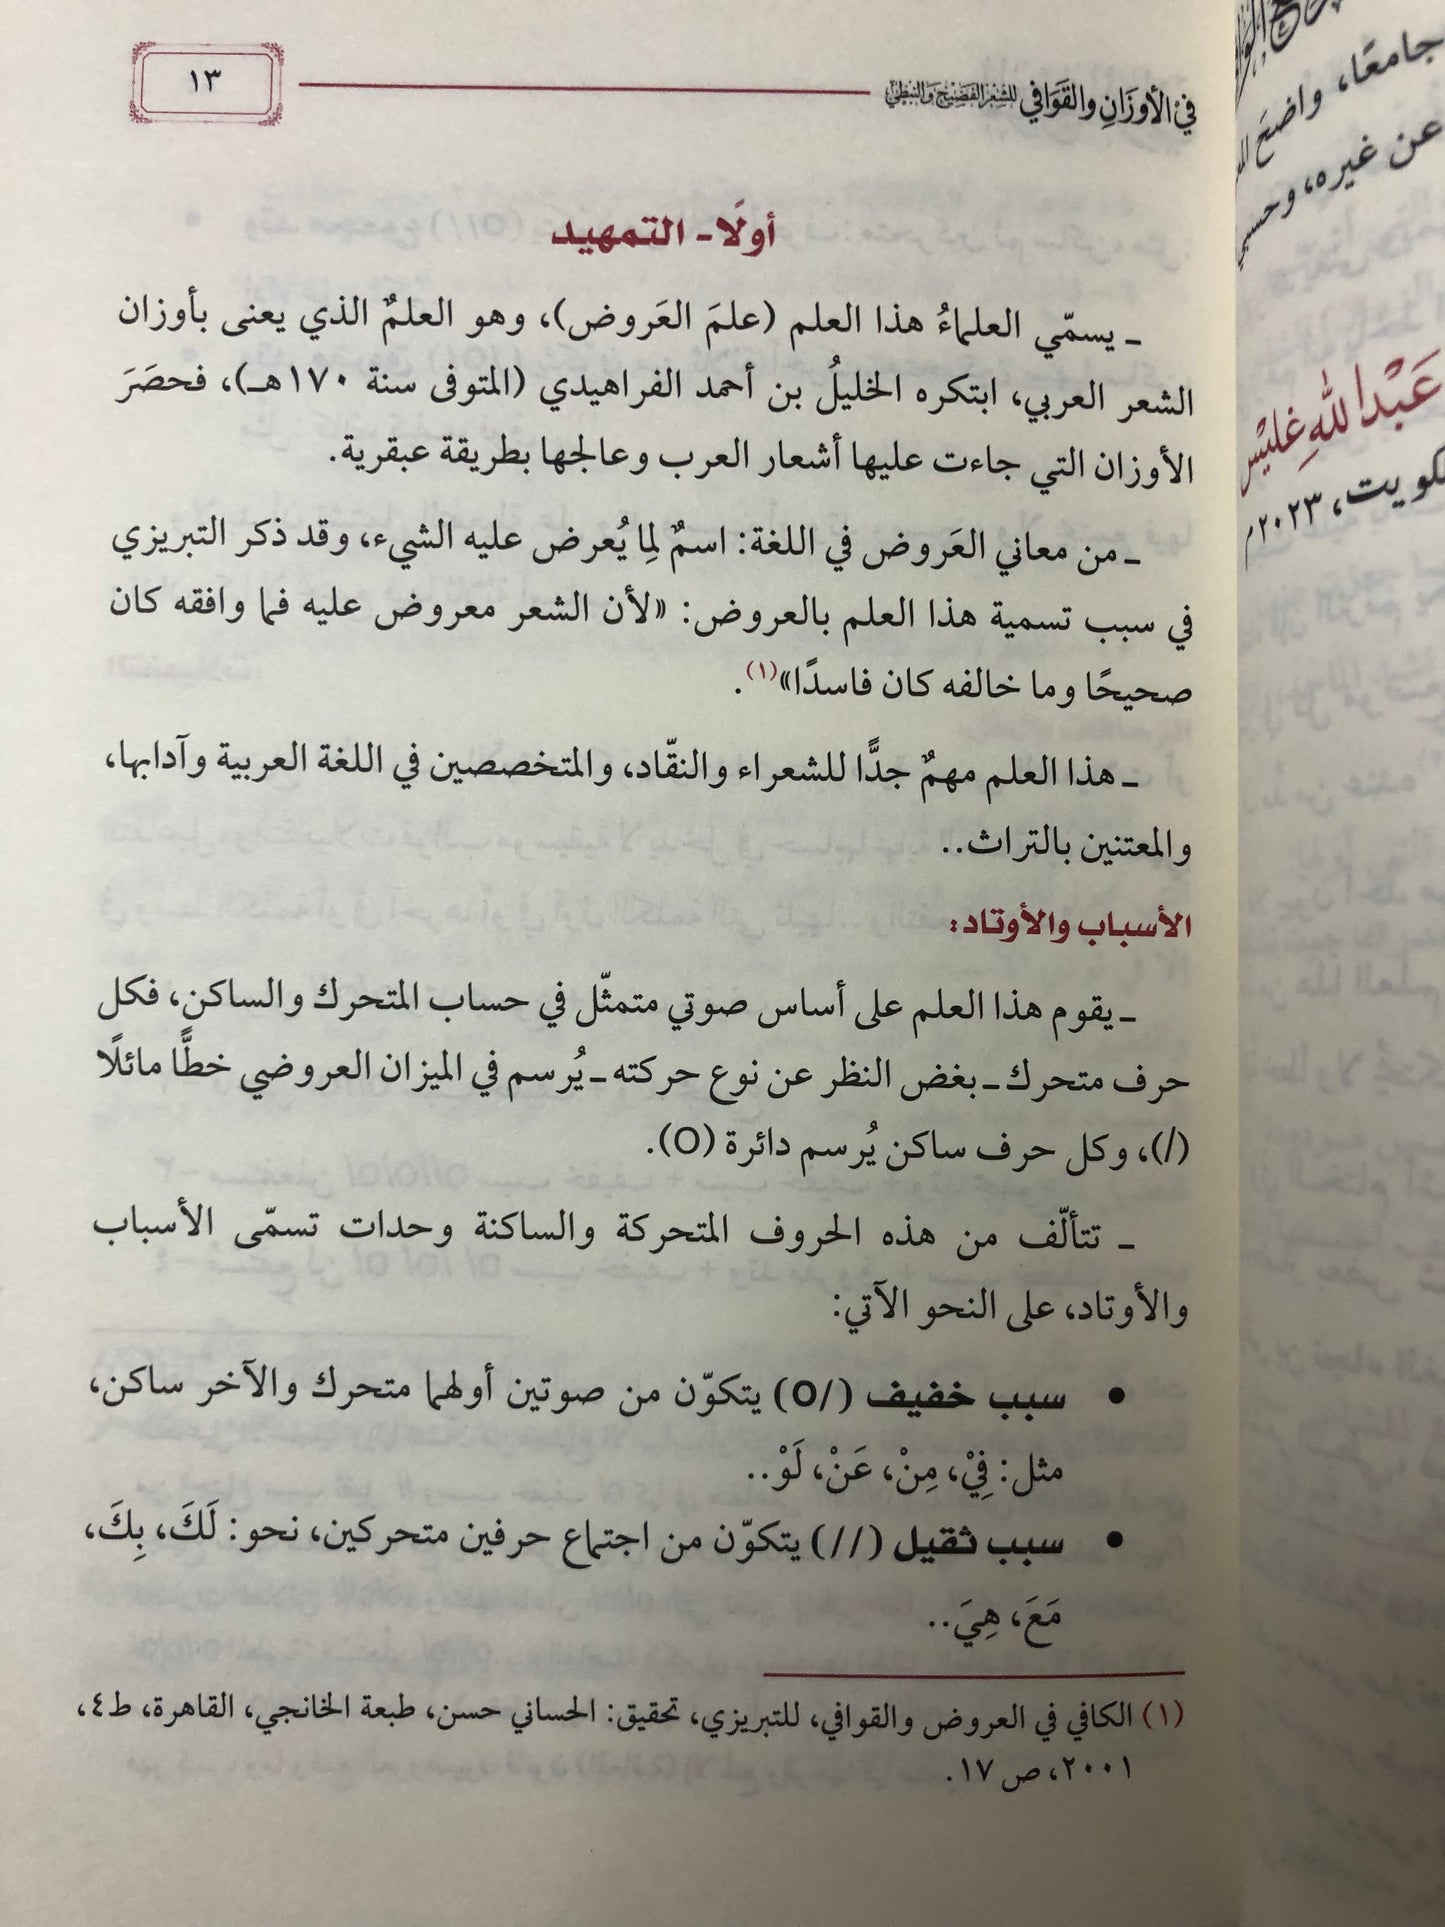 في الأوزان والقوافي للشعر الفصيح والنبطي
١٣
أولًا- التمهيد
ـ يسمّي العلماءُ هذا العلم (علمَ العَروض)، وهو العلمٌ الذي يعنى بأوزان
الشعر العربي، ابتكره الخليلُ بن أحمد الفراهيدي (المتوفى سنة ١٧٠هـ)، فحصَرَ
الأوزان التي جاءت عليها أشعار العرب وعالجها بطريقة عبقرية.
ـ من معاني العَروض في اللغة: اسمٌ لِما يُعرض عليه الشيء، وقد ذكر التبريزي
في سبب تسمية هذا العلم بالعروض: «لأن الشعر معروض عليه فما وافقه كان
صحيحًا وما خالفه كان فاسدًا»(١).
ـ هذا العلم مهمٌ جدًّا للشعراء والنقّاد، والمتخصصين في اللغة العربية وآدابها،
والمعتنين بالتراث..
الأسباب والأوتاد:
ـ يقوم هذا العلم على أساس صوتي متمثّل في حساب المتحرك والساكن، فكل
حرف متحرك ـ بغض النظر عن نوع حركته ـ يُرسم في الميزان العروضي خطًّا مائلًا
(/)، وكل حرف ساكن يُرسم دائرة (O).
ـ تتألّف من هذه الحروف المتحركة والساكنة وحدات تسمّى الأسباب
والأوتاد، على النحو الآتي:
• سبب خفيف (/O) يتكوّن من صوتين أولهما متحرك والآخر ساكن،
مثل: فِيْ، مِنْ، عَنْ، لَوْ..
• سبب ثقيل (//) يتكوّن من اجتماع حرفين متحركين، نحو: لَكَ، بِكَ،
مَعَ، هِيَ..
(١) الكافي في العروض والقوافي، للتبريزي، تحقيق: الحساني حسن، طبعة الخانجي، القاهرة، ط٤،
٢٠٠١، ص ١٧.
جامعًا، واضحَ
عن غيره، وحسبي
عَبْدالله غليْس
٢٠٢٣م